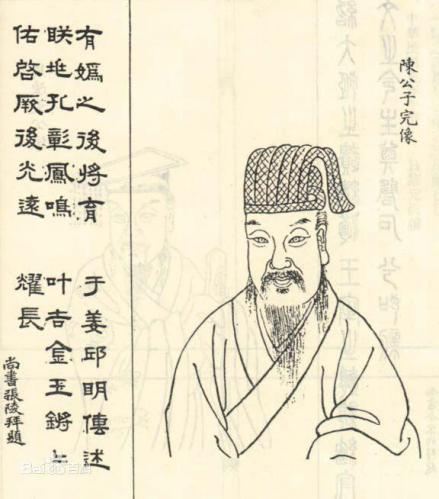 陳公子完像
有媯之後將育于姜邱明傳述
眹兆孔彰鳳鳴叶吉金玉鏘〻
佑啓厥後光遠耀長
尚書張陵拜題
Baidu百科